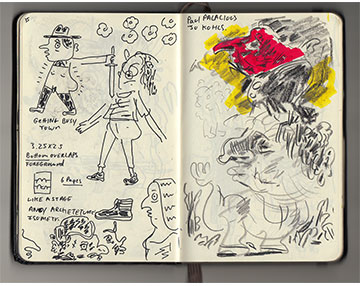 GETTING BUSY
TOWN
3.25 X 2.5
BOTTOM OVERLAPS
FOREGROUND
6 PAGES
LIKE A STAGE
ARCHETECTURE
ISOMETRIC
Paul PALACIOUS
JO KOHLS